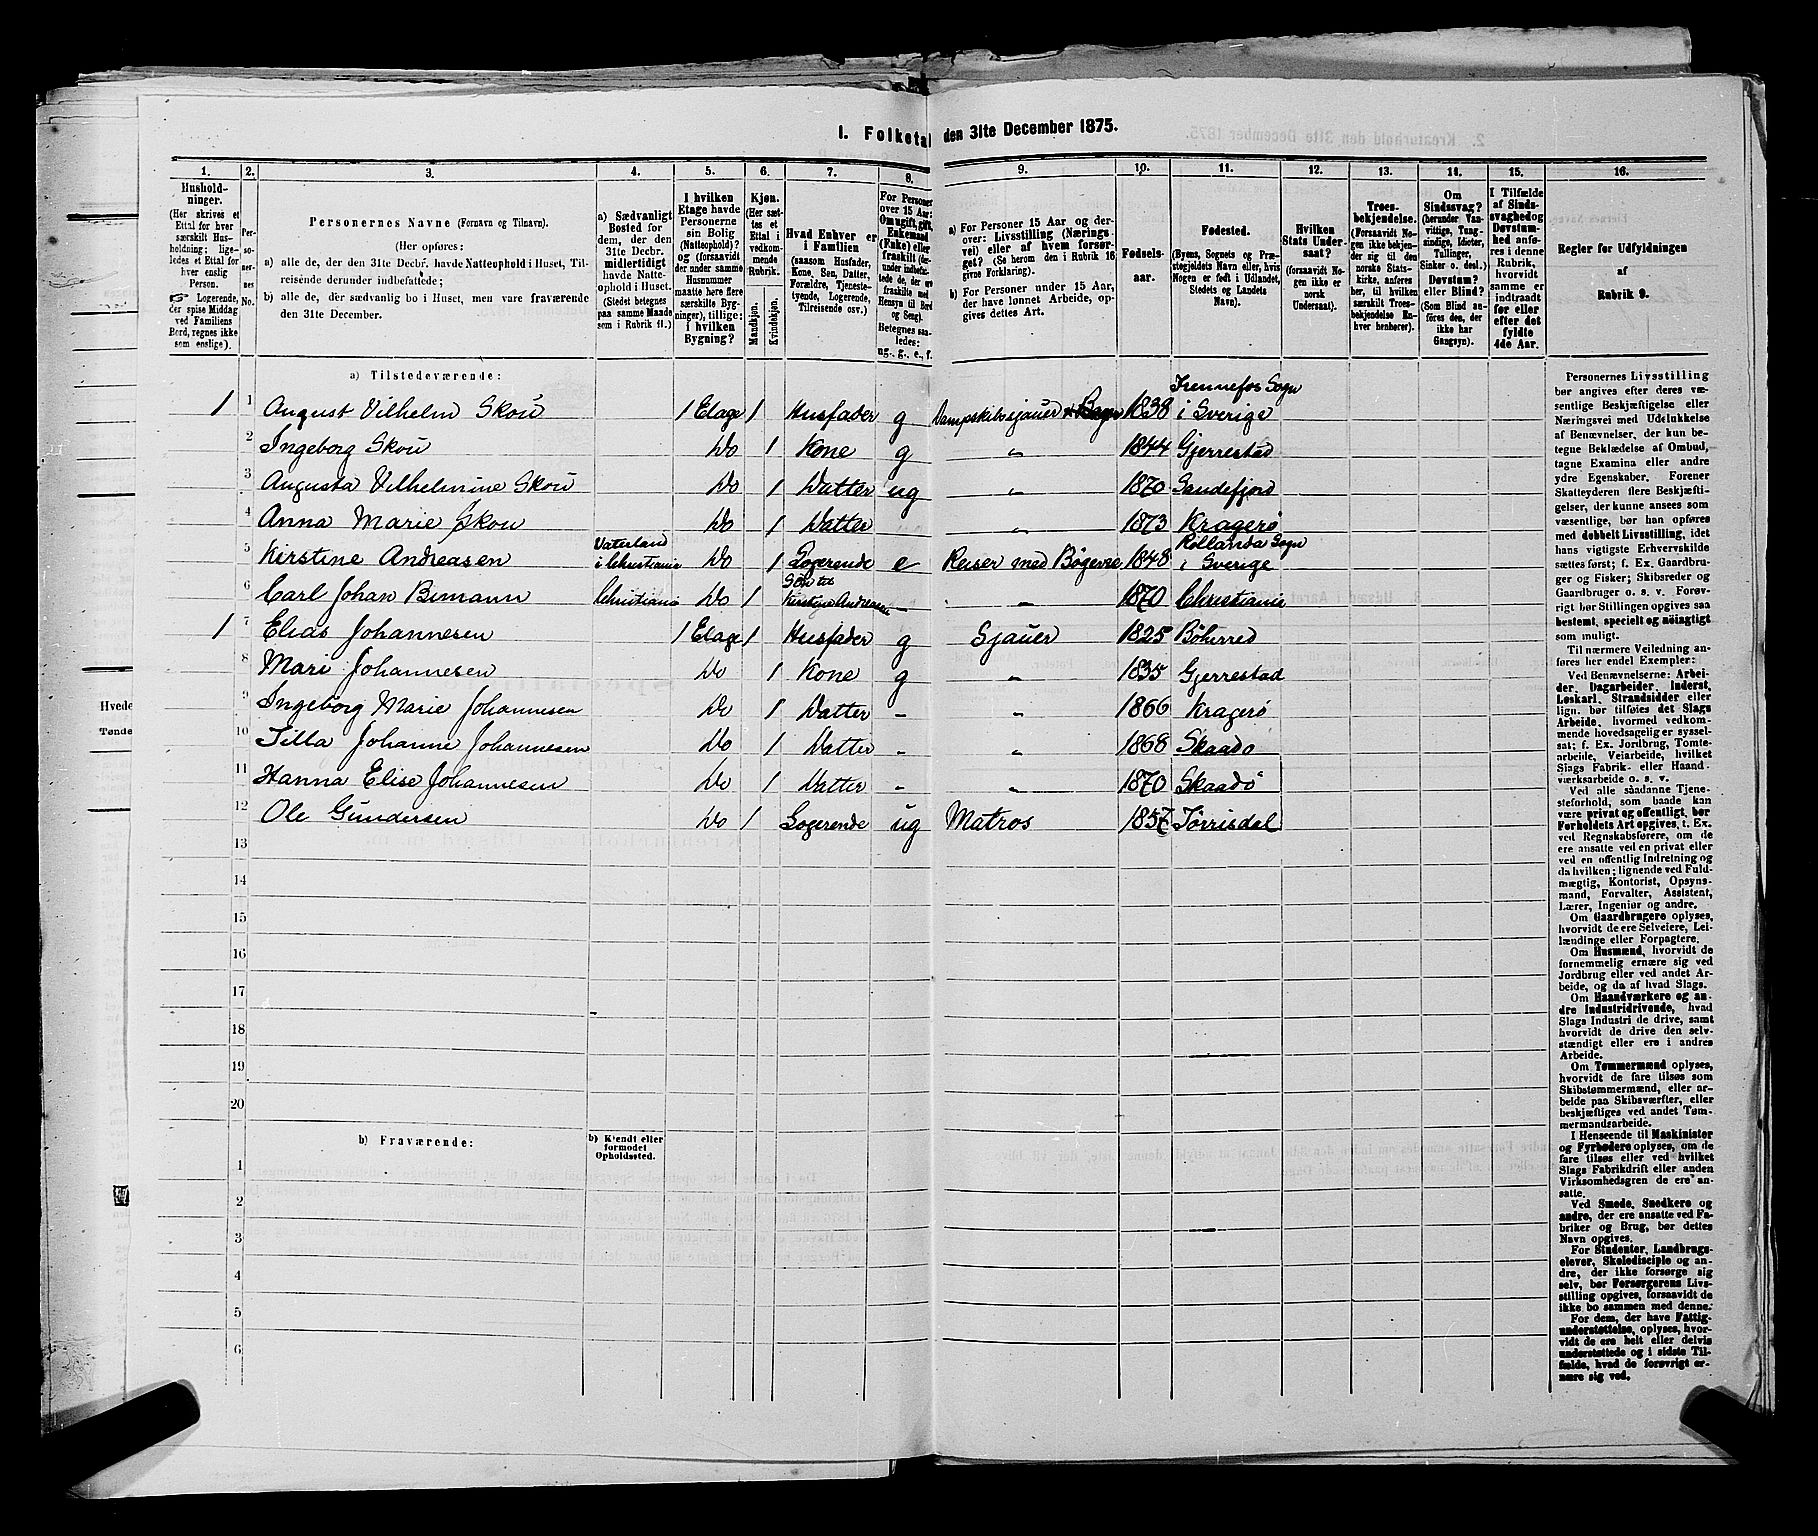 1. Folketal den 31te December 1875.
1. 2. 3. 4. 5. 6. 7. 8. 9. 10. 11. 12. 13. 14. 15. 16.
Hushold-
ninger.
(Her skrives et
Ettal for hver
særskilt Hus-
holdning; lige-
ledes et Ettal for
hver enslig
Person.
☞ Logerende,
der spise Middag
ved Familiens
Bord, regnes ikke
som enslige).
Per-
so-
ner-
nes
No.
Personernes Navne (Fornavn og Tilnavn).
(Her opføres:
a) alle de, der den 31te Decbr. havde Natteophold i Huset, Til-
reisende derunder indbefattede;
b) alle de, der sædvanlig bo i Huset, men vare fraværende
den 31te December.
a) Sædvanligt
Bosted for
dem, der den
31te Decbr.
midlertidigt
havde Natte-
ophold i Huset.
(Stedet betegnes
paa samme Maade
som i Rubrik 11.)
I hvilken
Etage havde
Personerne
sin Bolig
(Natteophold)?
og (forsaavidt
der under samme
Husnummer
maatte høre flere
særskilte Byg-
ninger), tillige:
i hvilken
Bygning?
Kjøn.
(Her sæt-
tes et
Ettal i
vedkom-
mende
Rubrik.
Mandkjøn.
Kvindekjøn.
Hvad Enhver er
i Familien
(saasom Husfader,
Kone, Søn, Datter,
Forældre, Tjeneste-
tyende, Logerende,
Tilreisende osv.)
For Personer
over 15 Aar:
Om ugift, gift,
Enkemand
(Enke) eller
fraskilt
Betegnes saa-
ledes:
ug., g., e., f.
a) For Personer 15 Aar og der-
over: Livsstilling (Nærings-
vei) eller af hvem forsør-
get? (Se herom den i Rubrik 16
givne Forklaring).
b) For Personer under 15 Aar,
der have lønnet Arbeide, op-
gives dettes Art.
Fødsels-
aar.
Fødested.
(Byens, Sognets og Præ-
stegjeldets Navn eller, hvis
Nogen er født i Udlandet,
Stedets og Landets
Navn).
Hvilken
Stats Under-
saat?
(forsaavidt No-
gen ikke er
norsk
Undersaat).
Troes-
bekjendelse.
(Forsaavidt No-
gen ikke bekjen-
der sig til den
norske Stats-
kirke, anføres
her, til hvilken
særskilt Troes-
bekjendelse En-
hver henhører).
Om
Sindssvag?
(herunder Van-
vittige, Tung-
sindige, Idioter,
Tullinger,
Sinker o. desl.)
Døvstum?
eller Blind?
(Som Blind an-
føres den, der
ikke har
Gangsyn).
I Tilfælde
af Sinds-
svaghed og
Døvstum-
hed anfø-
res i denne
Rubrik,
hvorvidt
samme er
indtraadt
før eller
efter det
fyldte
4de Aar.
Regler for Udfyldningen
af
Rubrik 9.
a) Tilstedeværende:
1 1 August Vilhelm Skou 1 Etage 1 Husfader g Dampskibssjauer 1838 Frennefos Sogn i Sverige
2 Ingeborg Skou Do 1 Kone g „ 1844 Gjerrestad
3 Augusta Vilhelmine Skou Do 1 Datter ug „ 1870 Sandefjord
4 Anna Marie Skou Do 1 Datter „ 1873 Kragerø
5 Kirstine Andreasen Vaterland i Christiania Do 1 Logerende e Reiser med 1848 Sogn i Sverige
6 Carl Johan Bimann Christiania Do 1 Søn til Kirstine Andreasen - „ 1870 Christiania
1 7 Elias Johannesen 1 Etage 1 Husfader g Sjauer 1825
8 Mari Johannesen Do 1 Kone g „ 1835 Gjerrestad
9 Ingeborg Marie Johannesen Do 1 Datter - „ 1866 Kragerø
10 Tilla Johanne Johannesen Do 1 Datter - „ 1868 Skaadø
11 Hanna Elise Johannesen Do 1 Datter - „ 1870 Skaadø
12 Ole Gundersen Do 1 Logerende ug Matros 1857 Tørrisdal
13
14
15
16
17
18
19
20
b) Fraværende:
b) Kjendt eller
formodet
Opholdssted.
1
2
3
4
5
6
Personernes Livsstilling
bør angives efter deres væ-
sentlige Beskjæftigelse eller
Næringsvei med Udelukkelse
af Benævnelser, der kun be-
tegne Beklædelse af Ombud,
tagne Examina eller andre
ydre Egenskaber. Forener
Skatteyderen flere Beskjæfti-
gelser, der kunne ansees som
væsentlige, bør han opføres
med dobbelt Livsstilling, idet
hans vigtigste Erhvervskilde
sættes først; f. Ex. Gaardbru-
ger og Fisker; Skibsreder og
Gaardbruger o. s. v. Forøv-
rigt bør Stillingen opgives saa
bestemt, specielt og nøiagtigt
som muligt.
Til nærmere Veiledning an-
føres her endel Exempler:
Ved Benævnelserne: Arbei-
der, Dagarbeider, Inderst,
Løskarl, Strandsidder eller
lign. bør tilføies det Slags
Arbeide, hvormed vedkom-
mende hovedsagelig er syssel-
sat; f. Ex. Jordbrug, Tomte-
arbeide, Veiarbeide, hvilket
Slags Fabrik- eller Haand-
værksarbeide o. s. v.
Ved alle saadanne Tjene-
steforhold, som baade kan
være privat og offentligt, bør
Forholdets Art opgives, t. Ex.
ved Regnskabsførere, om de
ere ansatte ved en privat eller
ved en offentlig Indretning og
da hvilken; lignende ved Fuld-
mægtig, Kontorist, Opsyns-
mand, Forvalter, Assistent,
Lærer, Ingeniør og andre.
Om Gaardbrugere oplyses,
hvorvidt de ere Selveiere, Lei-
lændinge eller Forpagtere.
Om Husmænd, hvorvidt de
fornemmelig ernære sig ved
Jordbrug eller ved andet Ar-
beide, og da af hvad Slags.
Om Haandværkere og an-
dre Industridrivende, hvad
Slags Industri de drive, samt
hvorvidt de drive den selv-
stændigt eller ere i andres
Arbeide.
Om Tømmermænd oplyses,
hvorvidt de fare tilsøs som
Skibstømmermænd, eller ar-
beide paa Skibsværfter, eller
beskjæftiges ved andet Tøm-
mermandsarbeide.
I Henseende til Maskinister
og Fyrbødere oplyses, om de
fare tilsøs eller ved hvilket
Slags Fabrikdrift eller anden
Virksomhedsgren de ere an-
satte.
Ved Smede, Snedkere og
andre, der ere ansatte ved Fa-
briker og Brug, bør dettes
Navn opgives.
For Studenter, Landbrugs-
elever, Skoledisciple og an-
dre, der ikke forsørge sig
selv, bør Forsørgerens Livs-
stilling opgives, forsaavidt de
ikke bo sammen med denne.
For dem, der have Fattig-
understøttelse, oplyses, hvor-
vidt de ere helt eller delvis
understøttede og i sidste Til-
fælde, hvad de forøvrigt er-
nære sig ved.
Hvede
Tønde